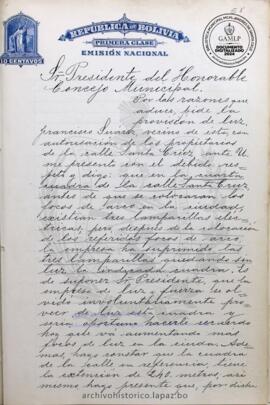 REPUBLICA DE BOLIVIA
PRIMERA CLASE
EMISIÓN NACIONAL
10 CENTAVOS
GAMLP
DOCUMENTO
DIGITALIZADO
2024
Sr. Presidente del Honorable
Concejo Municipal.
Por las razones que
aduce, pide la
provisión de luz.
Francisco Suarez, vecino de ésta, con
autorización de los propietarios
de la calle Santa Cruz, ante U.
me presento con el debido res-
peto y digo: que en la cuarta
cuadra de la calle Santa Cruz,
antes de que se colocaran los
focos de arco en la ciudad,
existían tres lamparillas eléc-
tricas, pero después de la colocación
de los referidos focos de arco
la empresa ha suprimido las
tres lamparillas quedando sin
luz la indicada cuadra. Es
de suponer Sr. Presidente, que la
empresa de luz y fuerza se ol-
vidó involuntariamente pro-
veer de luz esta cuadra y
sería oportuno hacerle acuerdo
hoy que va aumentando mas
focos de luz en la ciudad. Ade-
mas, hago constar que la cuadra
de la calle en referencia, tiene
la extensión de 240 metros, asi
mismo hago presente que, por dicha
archivohistorico.lapaz.bo